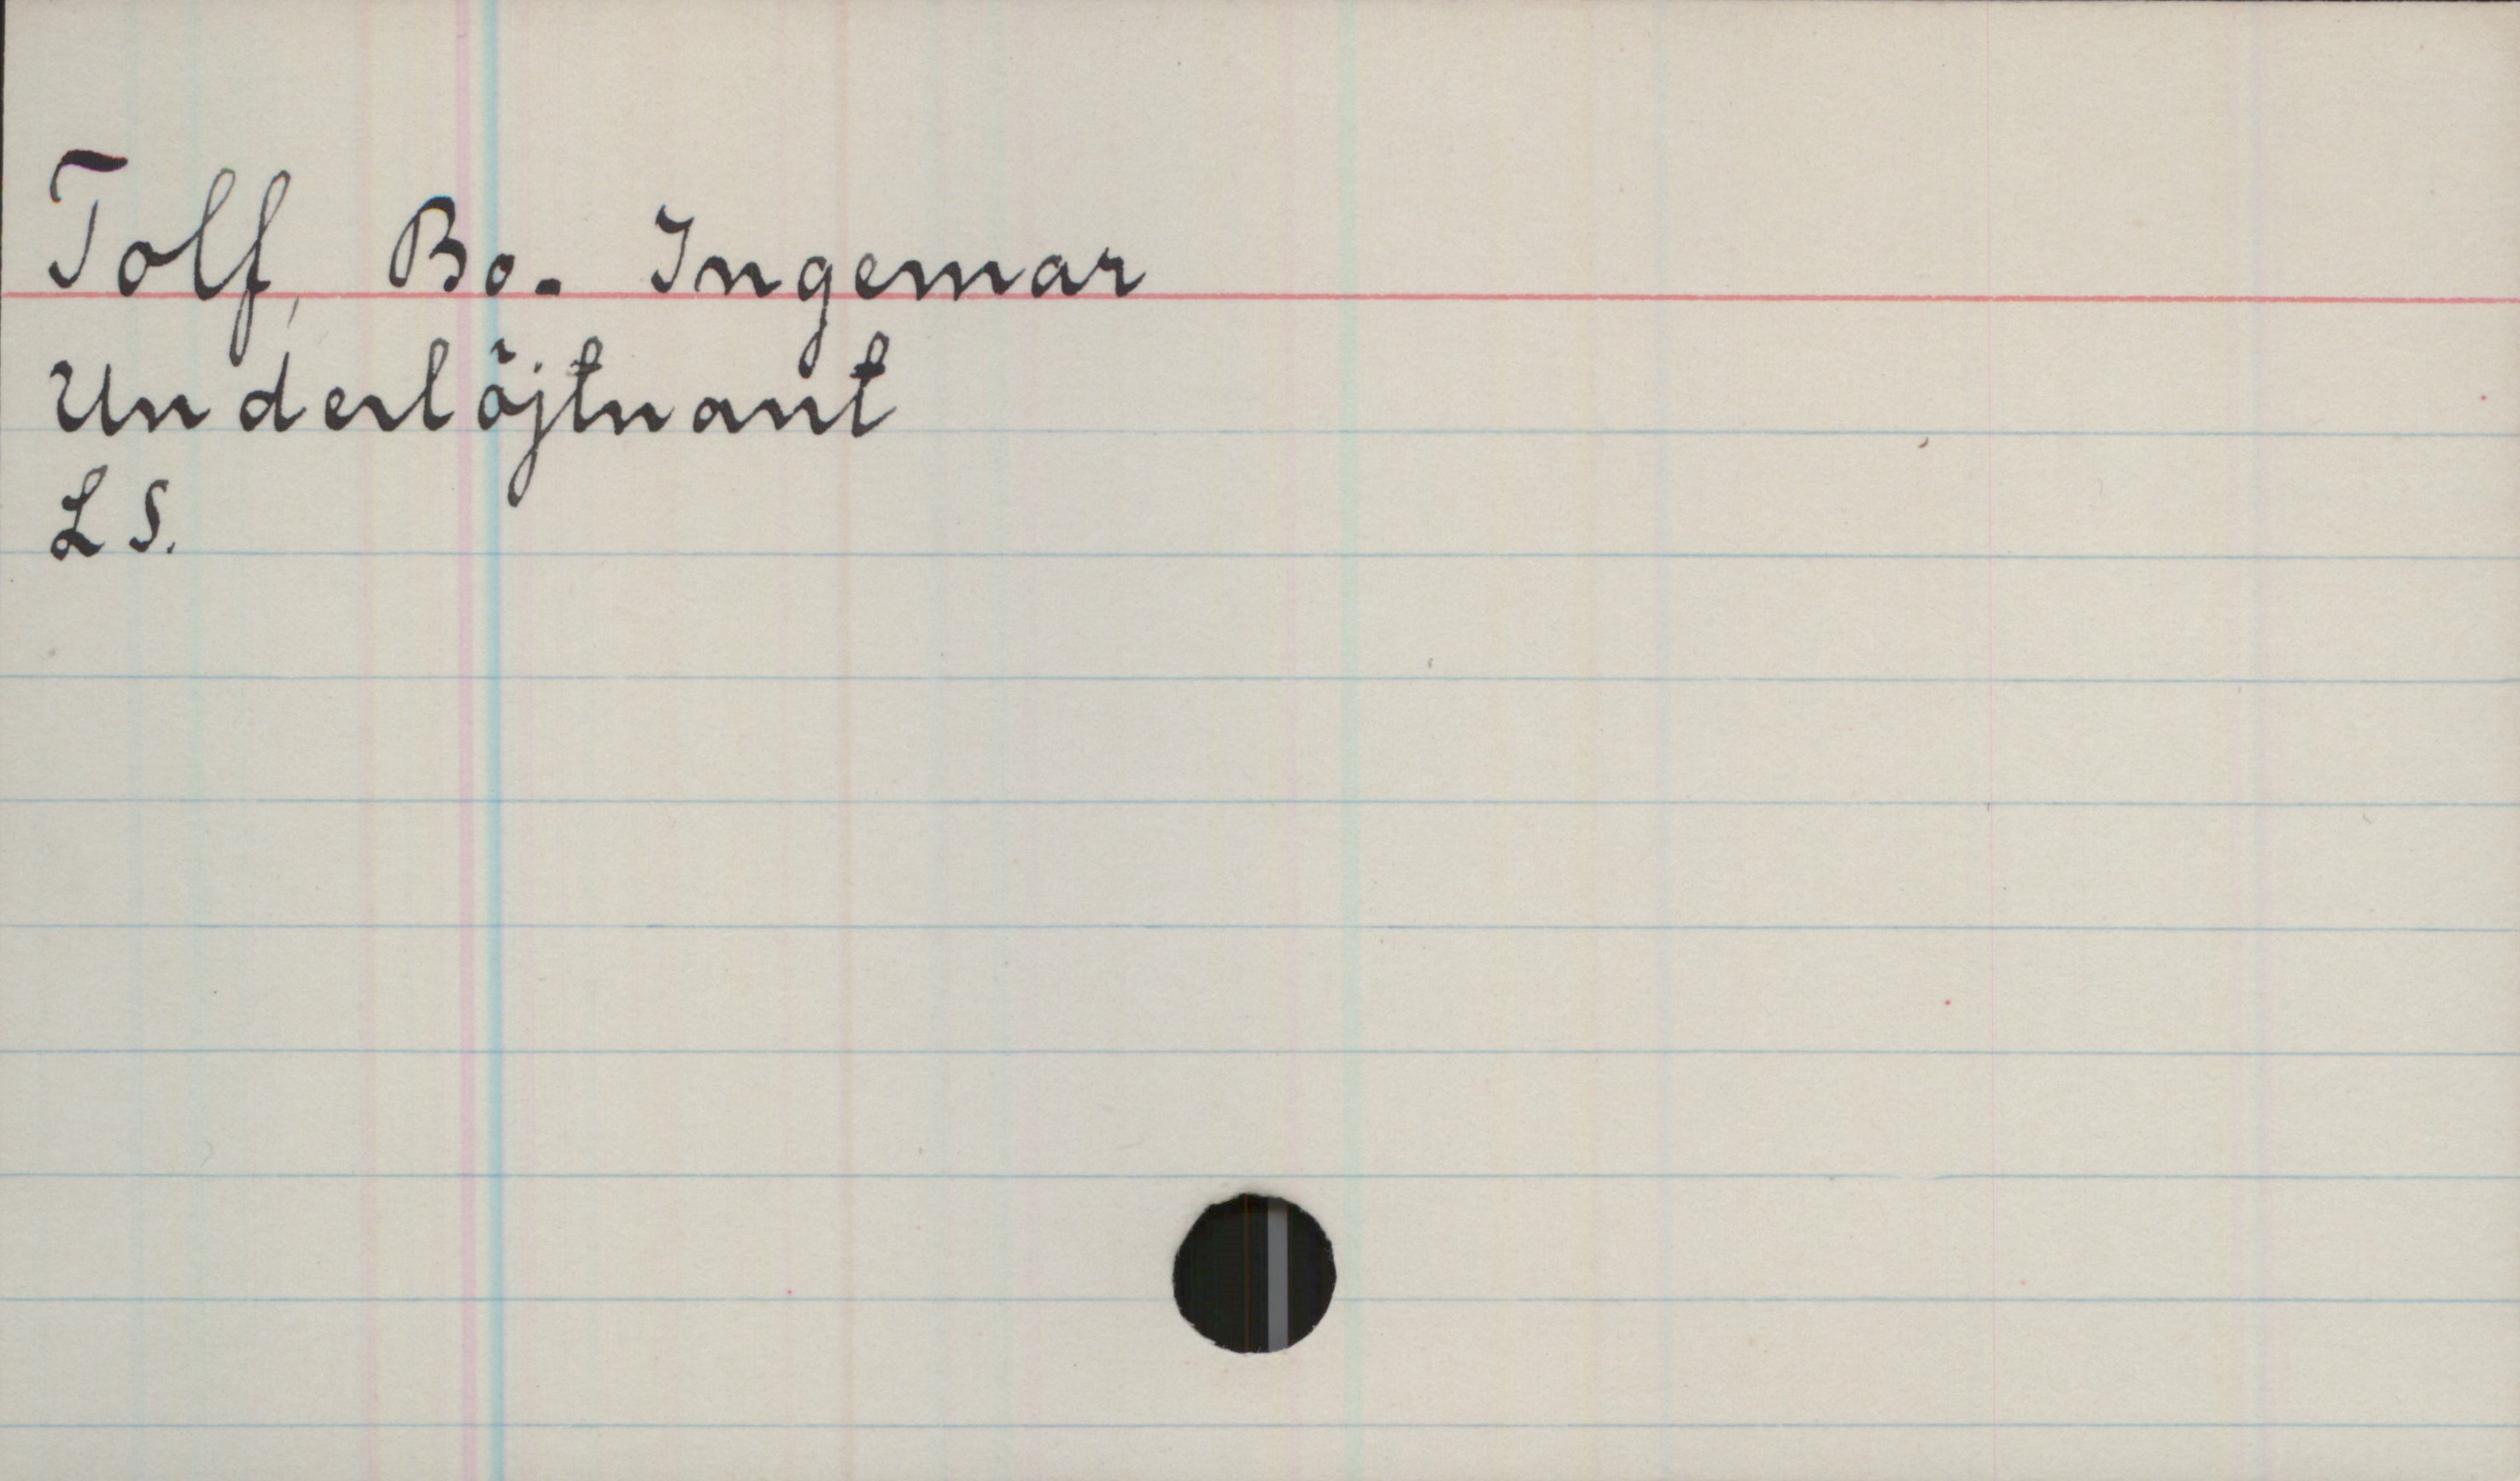 Tolf, Bo. Ingemar
Underlöjtnant
LS.